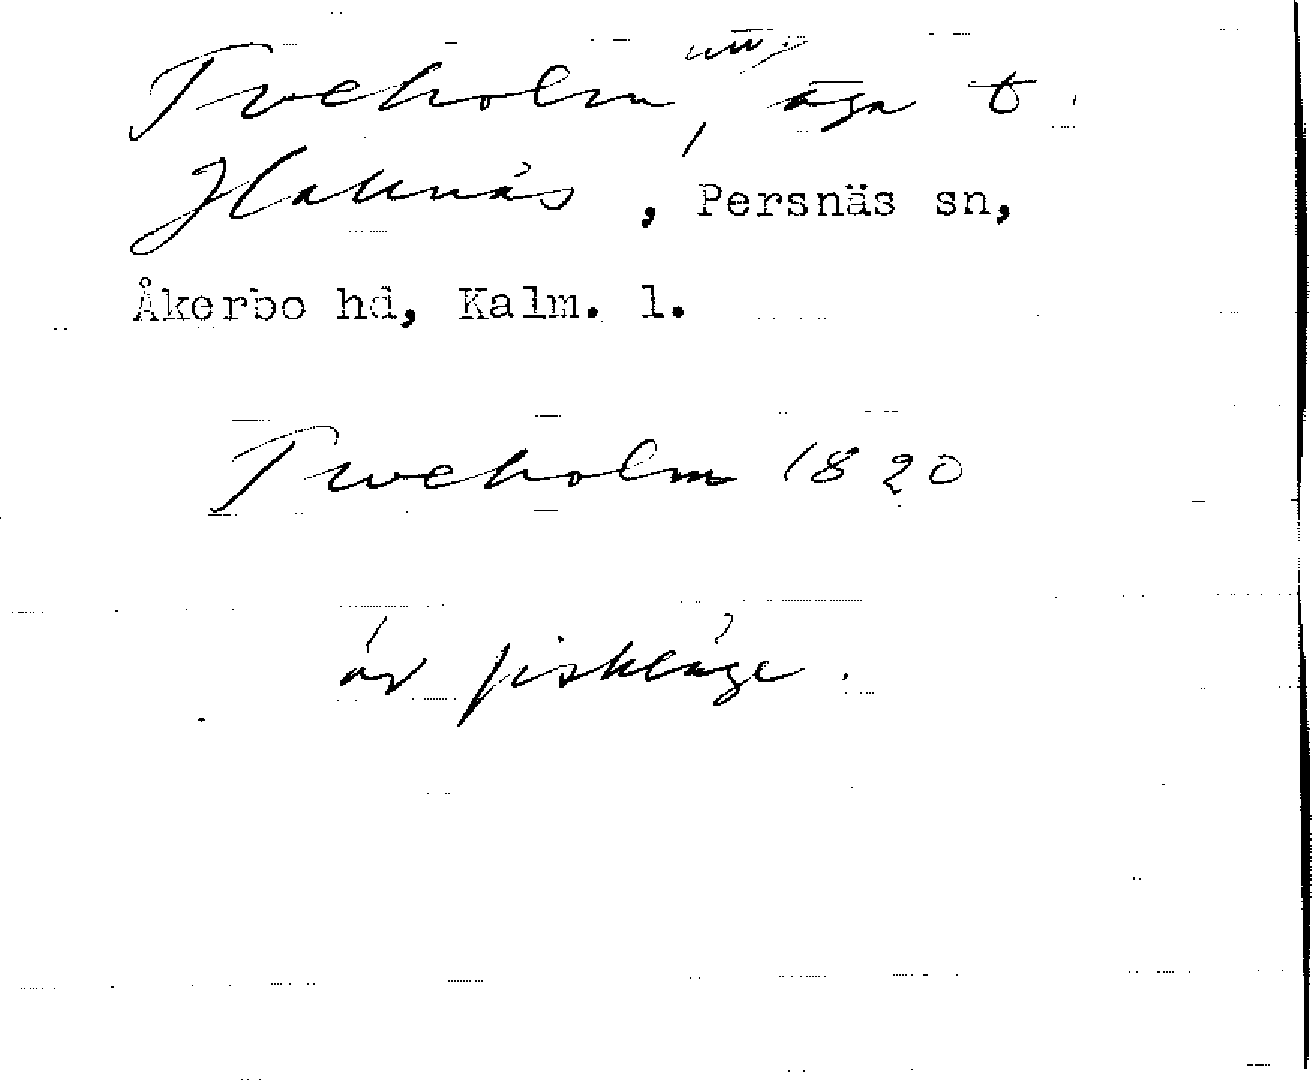 Tveholm, äga t.
Haknäs, Persnäs sn,
Åkerbo hd, Kalm. l.
Tveholm 1820
är fiskläge.